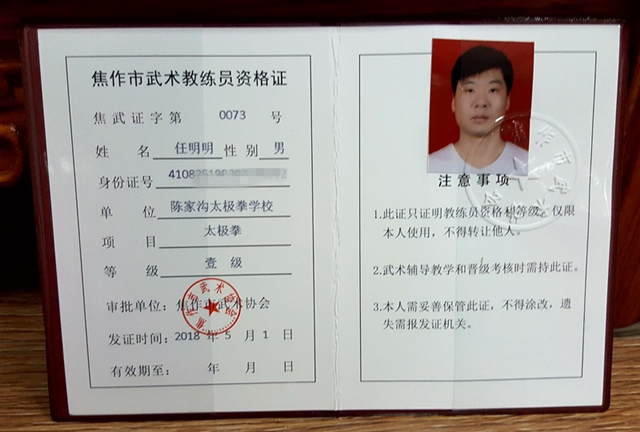 焦作市武术教练员资格证
焦武证字第 0073 号
姓 名 任明明 性别 男
身份证号
单 位 陈家沟太极拳学校
项 目 太极拳
等 级 壹级
审批单位: 焦作市武术协会
发证时间: 2018 年 5 月 1 日
有效期至: 年 月 日
注意事项
1.此证只证明教练员资格和等级。仅限
本人使用，不得转让他人。
2.武术辅导教学和晋级考核时需持此证。
3.本人需妥善保管此证，不得涂改，遗
失需报发证机关。